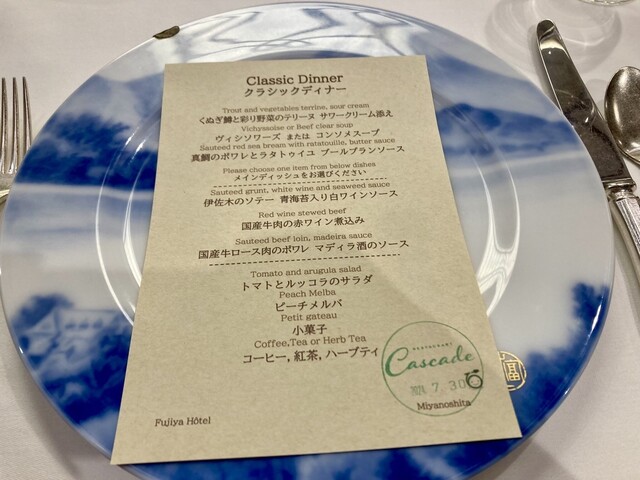 Classic Dinner
クラシックディナー
Trout and vegetables terrine, sour cream
くぬぎ鱒と彩り野菜のテリーヌ サワークリーム添え
Vichyssoise or Beef clear soup
ヴィシソワーズ または コンソメスープ
Sauteed red sea bream with ratatouille, butter sauce
真鯛のポワレとラタトゥイユ ブールブランソース
Please choose one item from below dishes
メインディッシュをお選びください
Sauteed grunt, white wine and seaweed sauce
伊佐木のソテー 青海苔入り白ワインソース
Red wine stewed beef
国産牛肉の赤ワイン煮込み
Sauteed beef loin, madeira sauce
国産牛ロース肉のポワレ マディラ酒のソース
Tomato and arugula salad
トマトとルッコラのサラダ
Peach Melba
ピーチメルバ
Petit gateau
小菓子
Coffee,Tea or Herb Tea
コーヒー, 紅茶, ハーブティ
RESTAURANT
Cascade
7. 30
Miyanoshita
Fujiya Hôtel